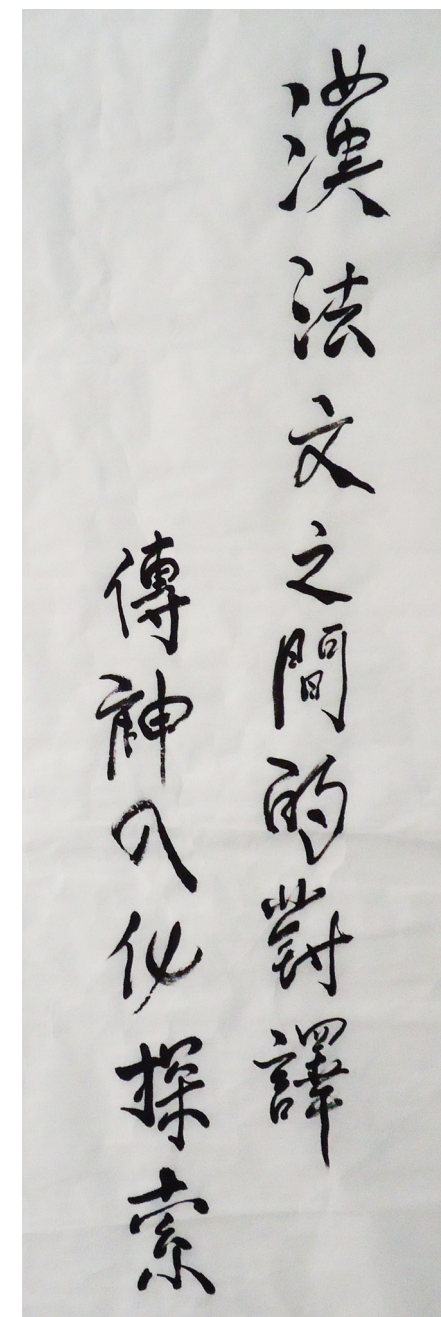 漢法文之間的對譯
傳神入化探索